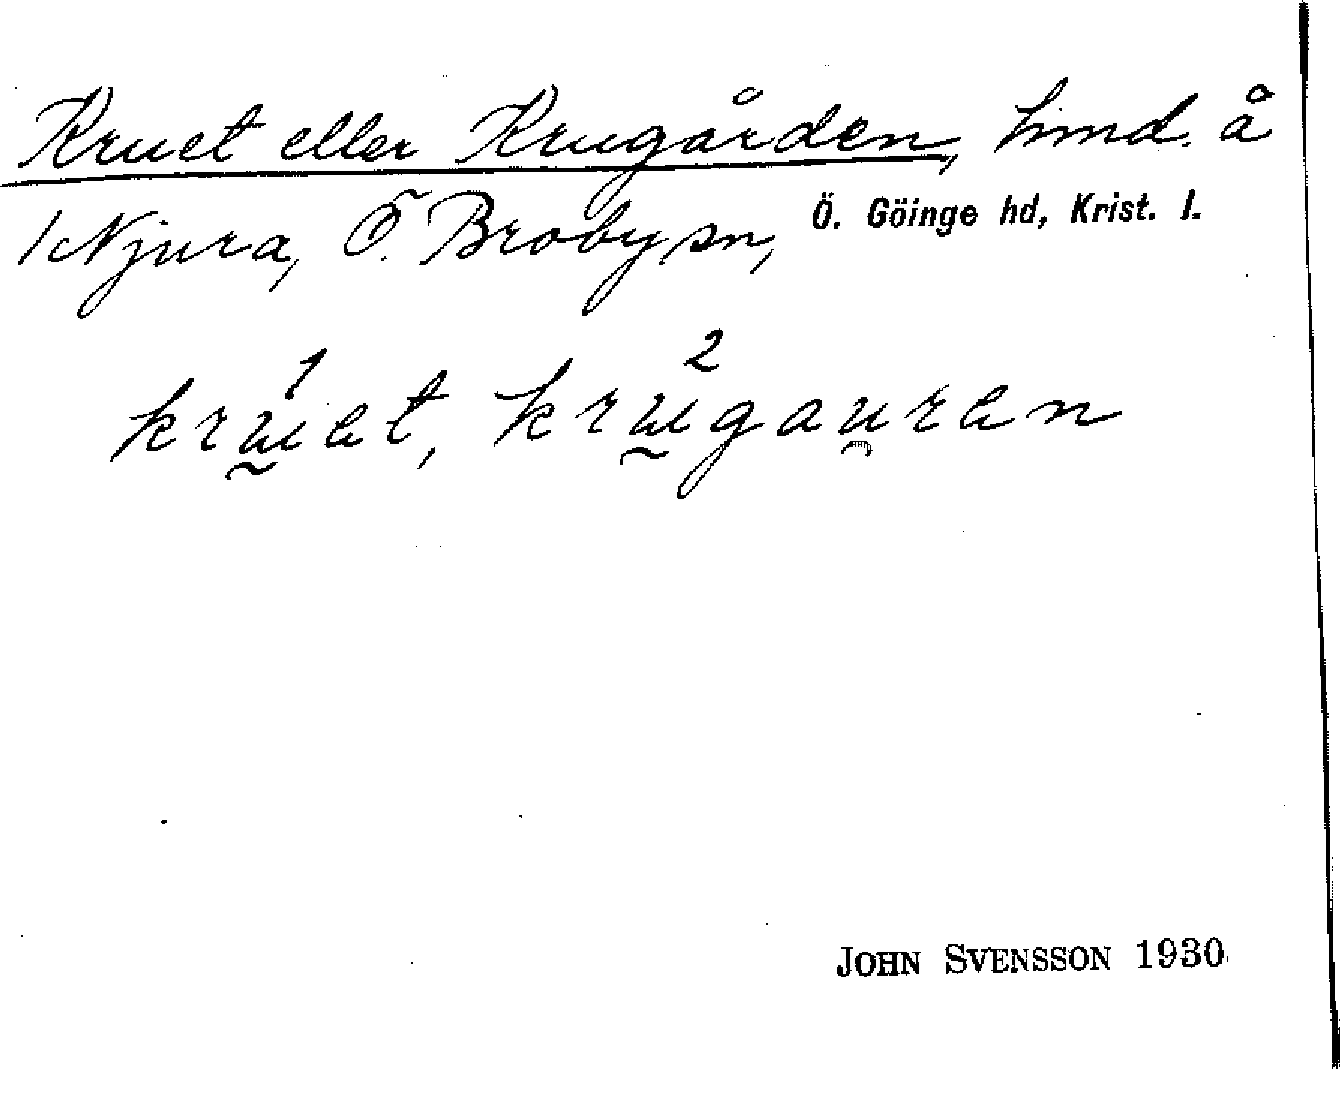 Kruet eller Krugården, hmd. å
1 Njura, Ö. Broby sn, Ö. Göinge hd, Krist. l.
1 2
kruet, krugauren
JOHN SVENSSON 1930